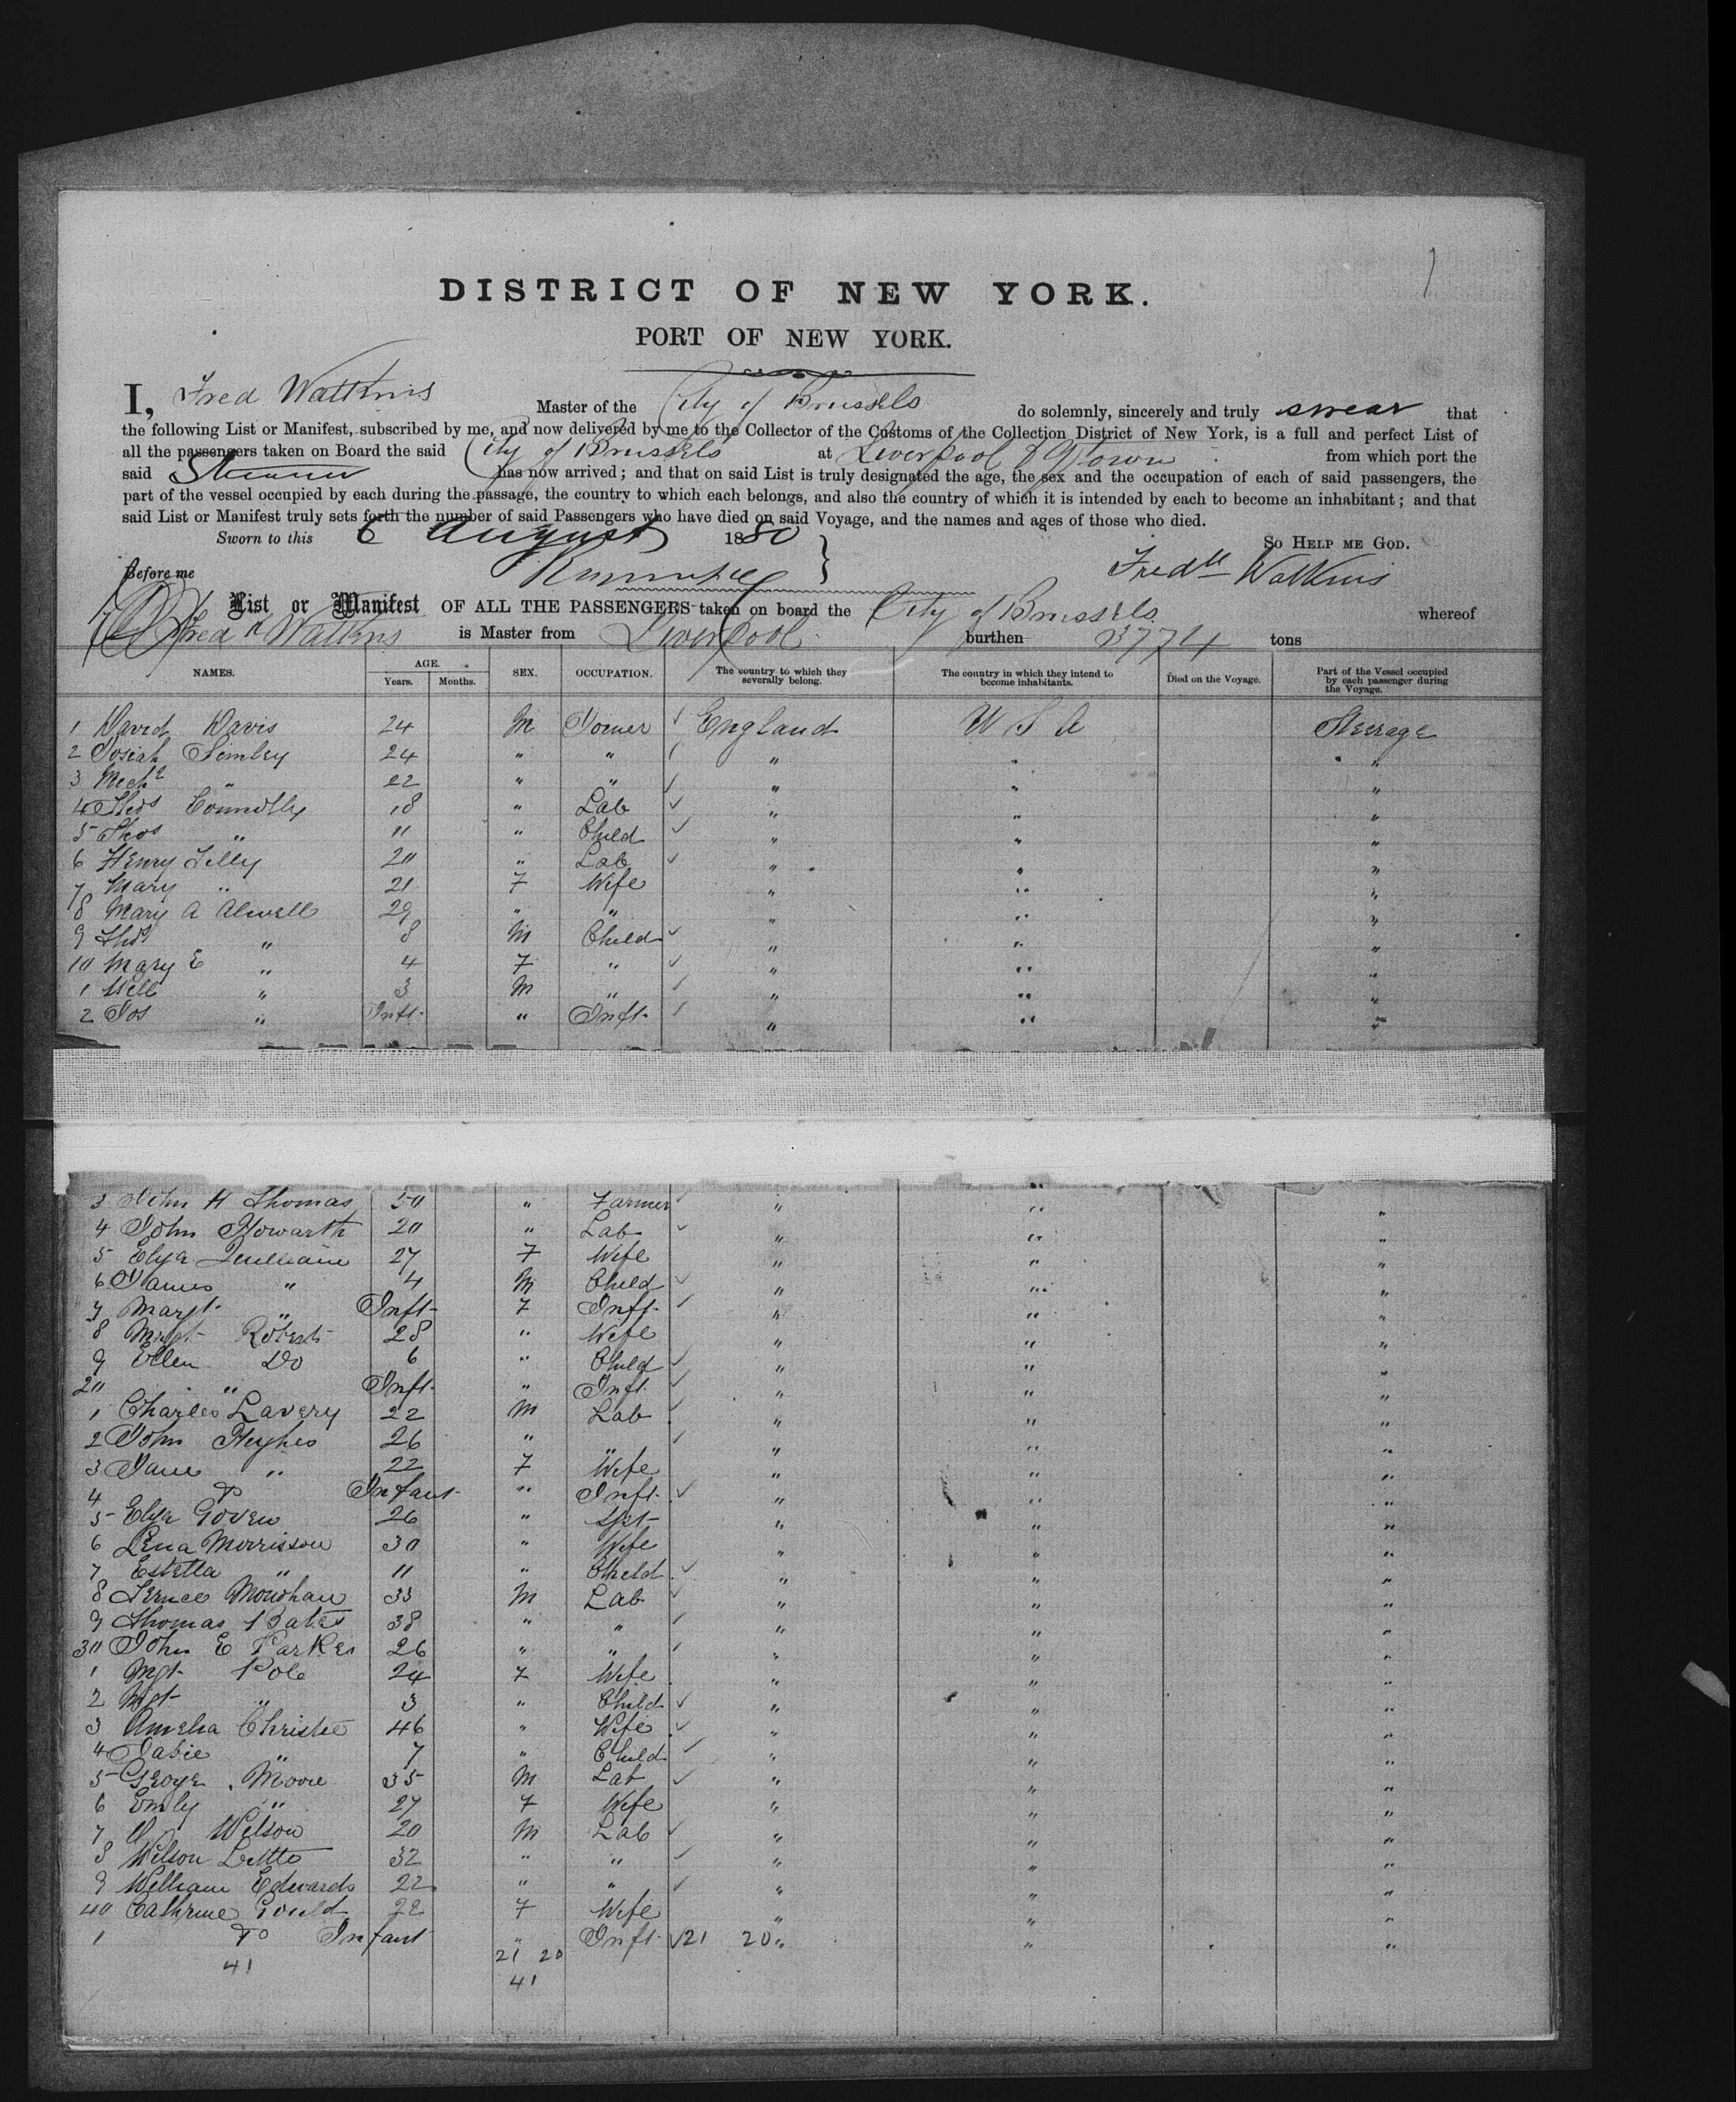 1
DISTRICT OF NEW YORK.
PORT OF NEW YORK.
I, Fred Watkins Master of the City of Brussels do solemnly, sincerely and truly swear that
the following List or Manifest, subscribed by me, and now delivered by me to the Collector of the Customs of the Collection District of New York, is a full and perfect List of
all the passengers taken on Board the said City of Brussels at Liverpool & QTown from which port the
said Steamer has now arrived; and that on said List is truly designated the age, the sex and the occupation of each of said passengers, the
part of the vessel occupied by each during the passage, the country to which each belongs, and also the country of which it is intended by each to become an inhabitant; and that
said List or Manifest truly sets forth the number of said Passengers who have died on said Voyage, and the names and ages of those who died.
Sworn to this 6 August 1880 So Help me God.
Before me Fredk Watkins
List or Manifest OF ALL THE PASSENGERS taken on board the City of Brussels whereof
Fredk Watkins is Master from Liverpool burthen 3774 tons
NAMES. AGE. Years. Months. SEX. OCCUPATION. The country to which they severally belong. The country in which they intend to become inhabitants. Died on the Voyage. Part of the Vessel occupied by each passenger during the Voyage.
1 David Davis 24 M Joiner ✓ England U S A Steerage
2 Josiah Simley 24 " " " " "
3 Mich " 22 " " ✓ " " "
4 Thos Connolly 18 " Lab ✓ " " "
5 Thos " 11 " Child ✓ " " "
6 Henry Lilly 20 " Lab ✓ " " "
7 Mary " 21 F Wife " " "
8 Mary A Alwell 29 " " " " "
9 Thos " 8 M Child ✓ " " "
10 Mary E " 4 F " ✓ " " "
1 Will " 3 M " ✓ " " "
2 Jos " Inft. " Inft. ✓ " " "
3 John H Thomas 50 " Farmer ✓ " " "
4 John Howarth 20 " Lab ✓ " " "
5 Elza Quilliam 27 F Wife " " "
6 James " 4 M Child ✓ " " "
7 Margt " Inft. F Inft. ✓ " " "
8 Margt Roberts 28 " Wife " " "
9 Ellen Do 6 " Child ✓ " " "
20 " Inft. " Inft. ✓ " " "
1 Charles Lavery 22 M Lab ✓ " " "
2 John Hughes 26 " " ✓ " " "
3 Jane " 22 F Wife " " "
4 Do Infant " Inft. ✓ " " "
5 Elza Goven 26 " Spt " " "
6 Lena Morrisson 30 " Wife " " "
7 Estella " 11 " Child ✓ " " "
8 Terence Monohan 33 M Lab ✓ " " "
9 Thomas Bates 38 " " ✓ " " "
30 John E Parkes 26 " " ✓ " " "
1 Mgt Pole 24 F Wife " " "
2 Mgt " 3 " Child ✓ " " "
3 Amelia Christie 46 " Wife ✓ " " "
4 " 7 " Child ✓ " " "
5 George Moore 35 M Lab ✓ " " "
6 Emily " 27 F Wife " " "
7 Wilson 20 M Lab ✓ " " "
8 Wilson Little 32 " " ✓ " " "
9 William Edwards 22 " " ✓ " " "
40 Cathrine Gould 22 F Wife " " "
1 Do Infant " Inft. ✓ 21 20 " " "
41 21 20
41